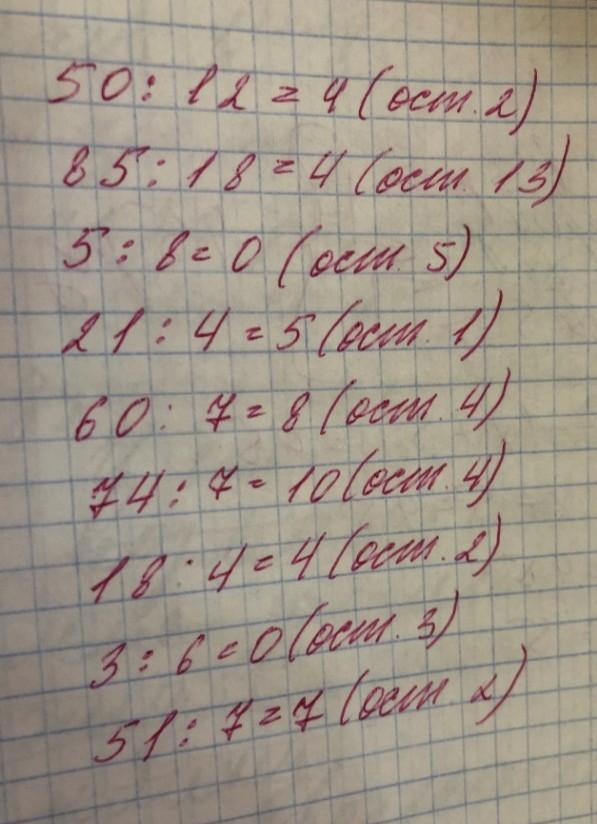 50 : 12 = 4 (ост. 2)
85 : 18 = 4 (ост. 13)
5 : 8 = 0 (ост. 5)
21 : 4 = 5 (ост. 1)
60 : 7 = 8 (ост. 4)
74 : 7 = 10 (ост. 4)
18 : 4 = 4 (ост. 2)
3 : 6 = 0 (ост. 3)
51 : 7 = 7 (ост. 2)